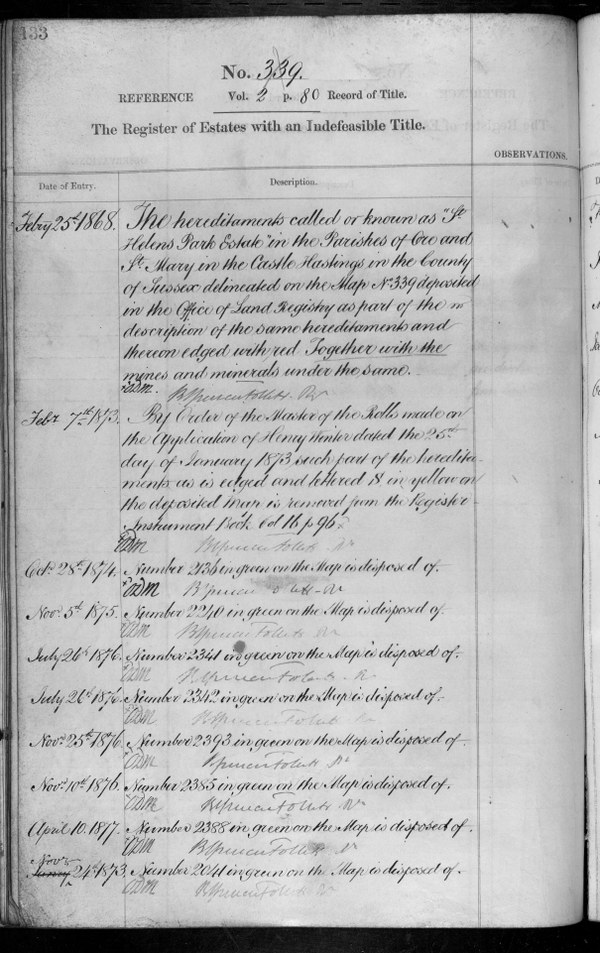 133
No. 339.
REFERENCE Vol. 2 p. 80 Record of Title.
The Register of Estates with an Indefeasible Title.
OBSERVATIONS.
Date of Entry. Description.
Feb'ry 25th 1868. The hereditaments called or known as "St
Helens Park Estate" in the Parishes of Ore and
St Mary in the Castle Hastings in the County
of Sussex delineated on the Map No 339 deposited
in the Office of Land Registry as part of the
description of the same hereditaments and
thereon edged with red Together with the
mines and minerals under the same.
ODM. B Spencer Follett Rr
Febr 7th 1873. By Order of the Master of the Rolls made on
the Application of Henry Winter dated the 25th
day of January 1873 such part of the heredita-
ments as is edged and lettered B in yellow on
the deposited Map is removed from the Register
Instrument Book Vol 16 p 96
ODM B Spencer Follett Rr
Octr 28th 1874. Number 2136 in green on the Map is disposed of.
ODM B Spencer Follett Rr
Novr 5th 1875. Number 2240 in green on the Map is disposed of.
ODM B Spencer Follett Rr
July 26th 1876. Number 2341 in green on the Map is disposed of.
ODM B Spencer Follett Rr
July 26th 1876. Number 2342 in green on the Map is disposed of.
ODM B Spencer Follett Rr
Novr 25th 1876 Number 2393 in green on the Map is disposed of.
ODM B Spencer Follett Rr
Novr 10th 1876. Number 2385 in green on the Map is disposed of.
ODM B Spencer Follett Rr
April 10. 1877. Number 2388 in green on the Map is disposed of.
ODM B Spencer Follett Rr
Novr
24th 1873. Number 2041 in green on the Map is disposed of.
ODM B Spencer Follett Rr